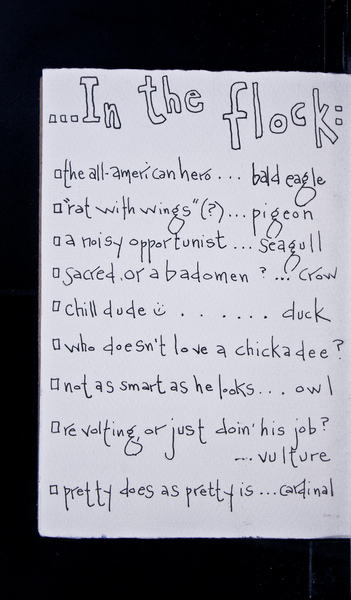 ...In the flock:
the all-american hero... bald eagle
"rat with wings"(?)... pigeon
a noisy opportunist... seagull
sacred, or a bad omen ?... crow
chill dude ☺ . . . . . . duck
who doesn't love a chickadee?
not as smart as he looks... owl
revolting, or just doin' his job?
...vulture
pretty does as pretty is...cardinal